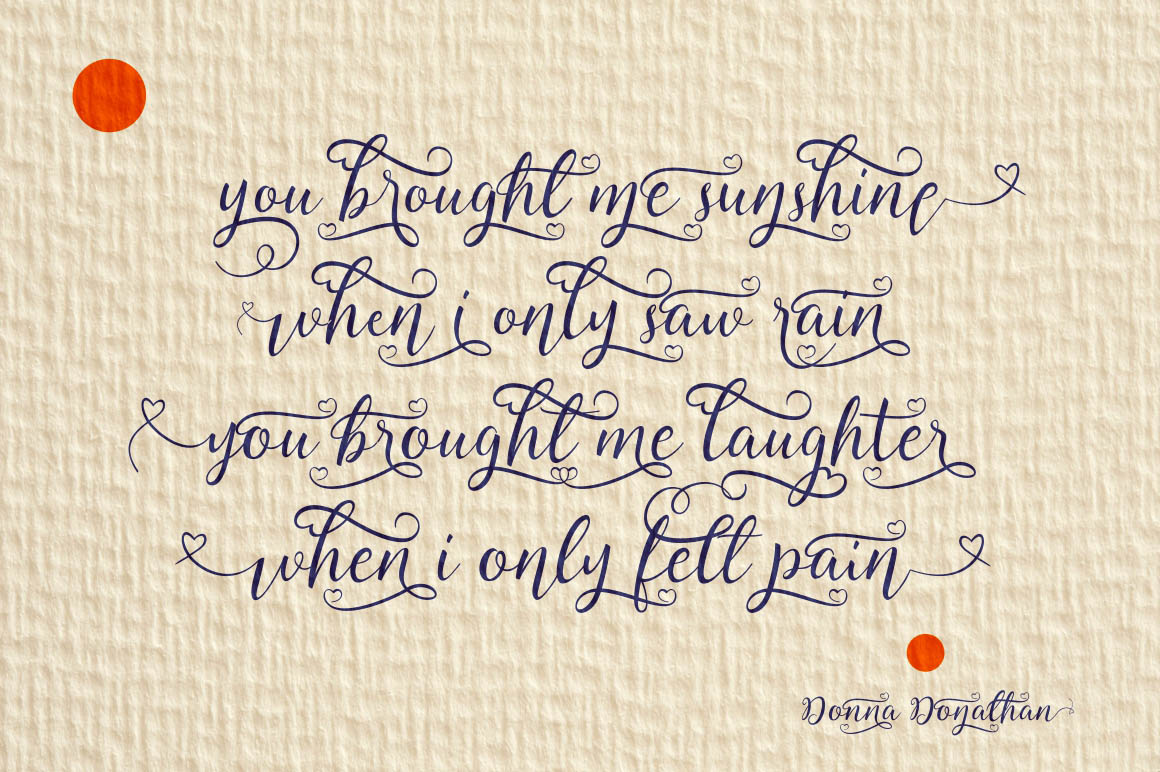 you brought me sunshine
when i only saw rain
you brought me laughter
when i only felt pain
Donna Donathan